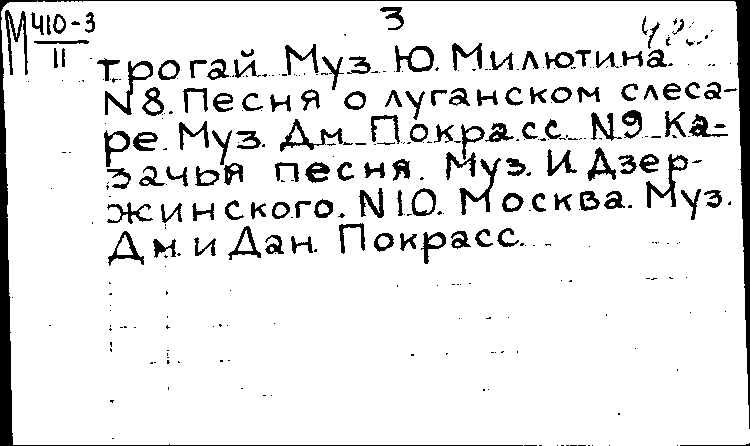 М 410-3
II
3
трогай. Муз. Ю. Милютина.
N 8. Песня о луганском слеса-
ре. Муз. Дм. Покрасс. N 9. Ка-
зачья песня. Муз. И. Дзер-
жинского. N 10. Москва. Муз.
Дм. и Дан. Покрасс.